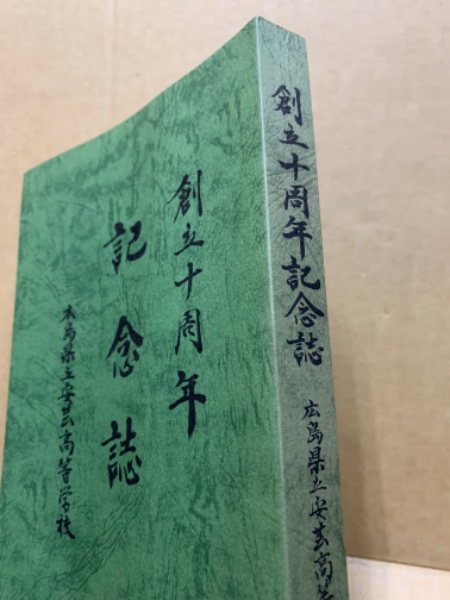 創立十周年
記念誌
広島県立安芸高等学校
創立十周年記念誌
広島県立安芸高等